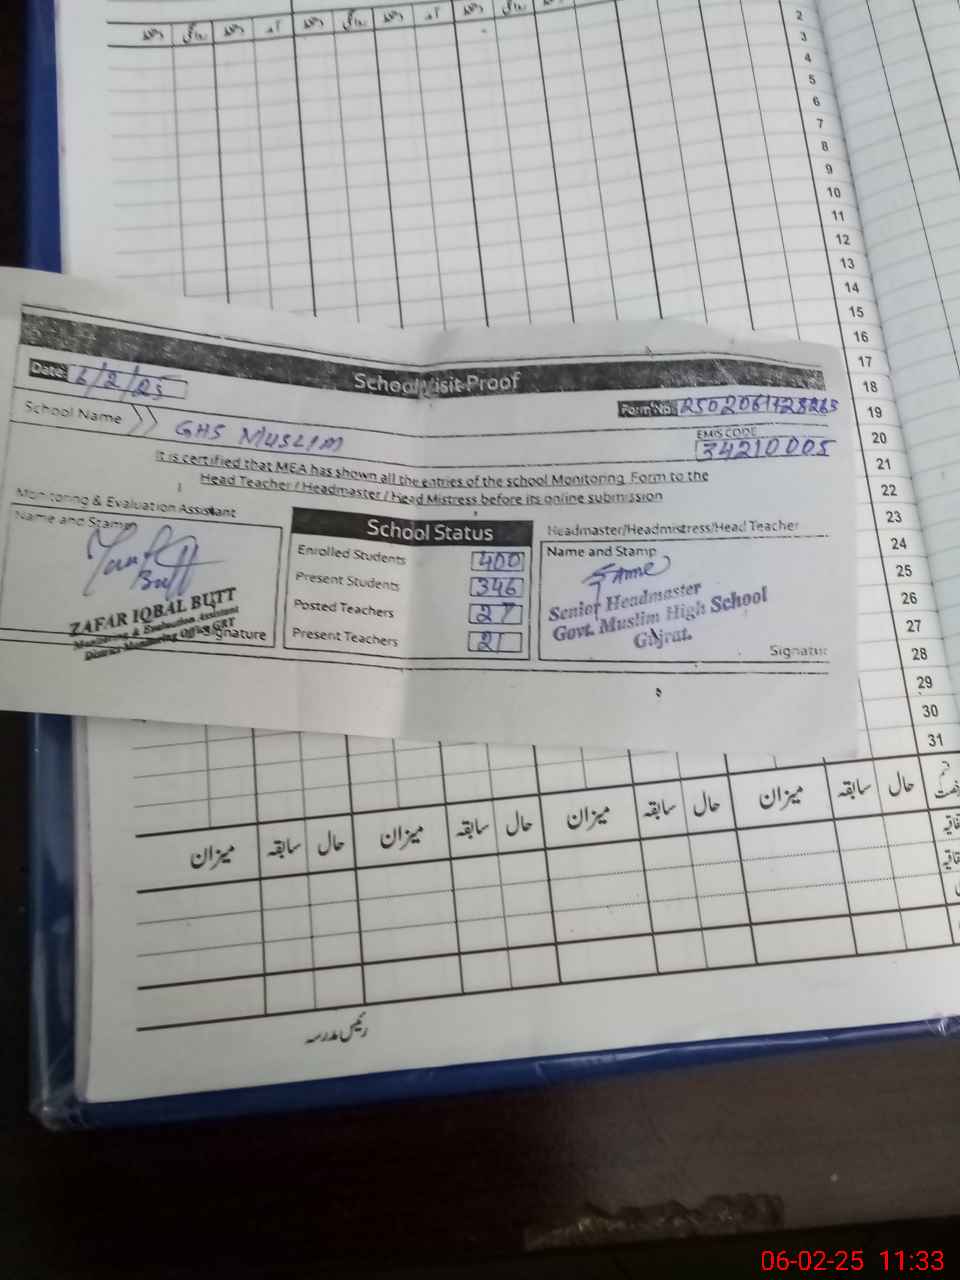 دستخط روانگی دستخط آمد دستخط روانگی دستخط آمد دستخط روانگی
2
3
4
5
6
7
8
9
10
11
12
13
14
15
16
17
18
19
20
21
22
23
24
25
26
27
28
29
30
31
School Visit Proof
Date: 6/2/25
Form No. 2502061128265
School Name GHS MUSLIM
EMIS CODE
34210005
It is certified that MEA has shown all the entries of the school Monitoring Form to the
Head Teacher / Headmaster / Head Mistress before its online submission
Monitoring & Evaluation Assistant
Name and Stamp
Butt
ZAFAR IQBAL BUTT
Monitoring & Evaluation Assistant
District Monitoring Office GRT
Signature
School Status
Enrolled Students 400
Present Students 346
Posted Teachers 27
Present Teachers 21
Headmaster/Headmistress/Head Teacher
Name and Stamp
Senior Headmaster
Govt. Muslim High School
Gujrat.
Signatur
میزان سابقہ حال میزان سابقہ حال میزان سابقہ حال میزان سابقہ حال
رئیس مدرسہ
06-02-25 11:33